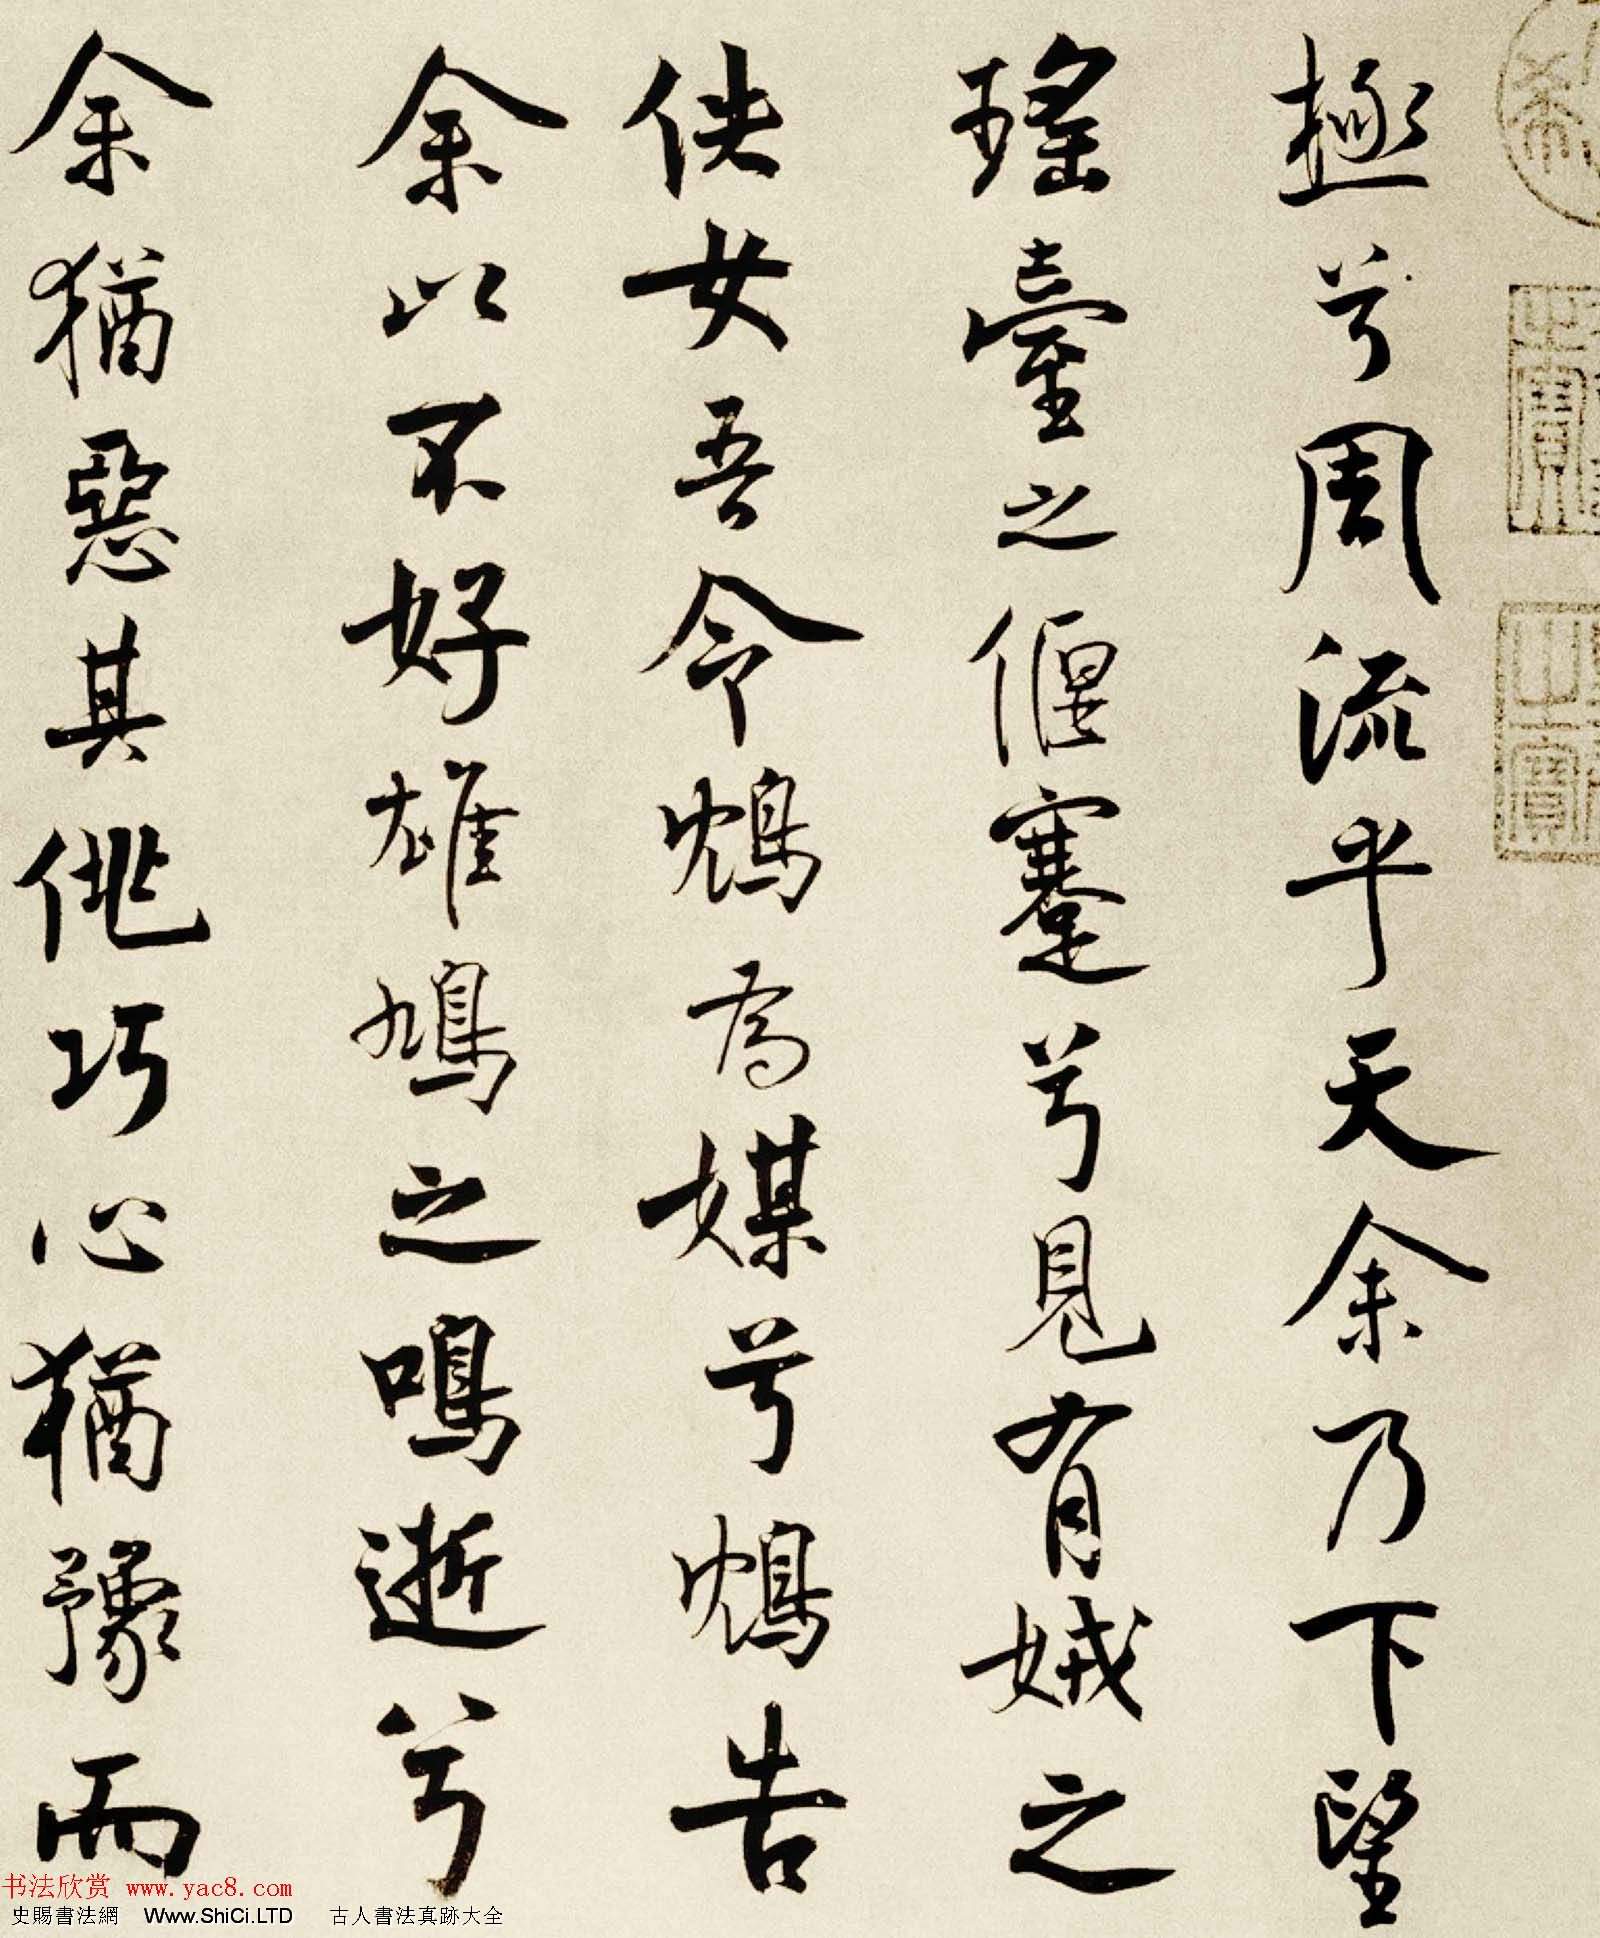 極兮周流乎天余乃下望
瑤臺之偃蹇兮見有娀之
佚女吾令鴆為媒兮鴆告
余以不好雄鳩之鳴逝兮
余猶惡其佻巧心猶豫而
书法欣赏 www.yac8.com
史賜書法網 Www.ShiCi.LTD 古人書法真跡大全